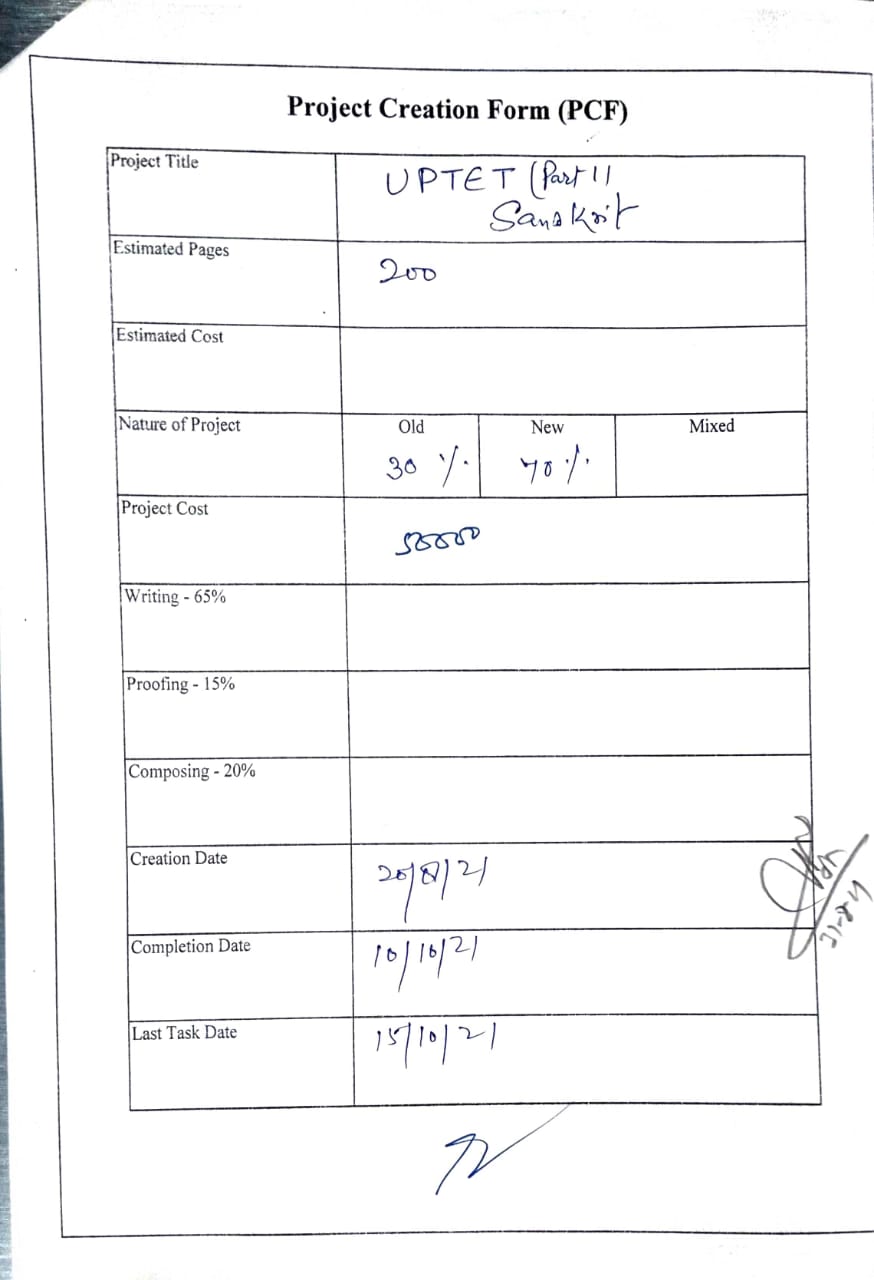 Project Creation Form (PCF)
Project Title
UPTET (Part 1)
Sanskrit
Estimated Pages
200
Estimated Cost
Nature of Project
Old
New
Mixed
30 %
70 %
Project Cost
50000
Writing - 65%
Proofing - 15%
Composing - 20%
Creation Date
20/8/21
Completion Date
10/10/21
Last Task Date
15/10/21